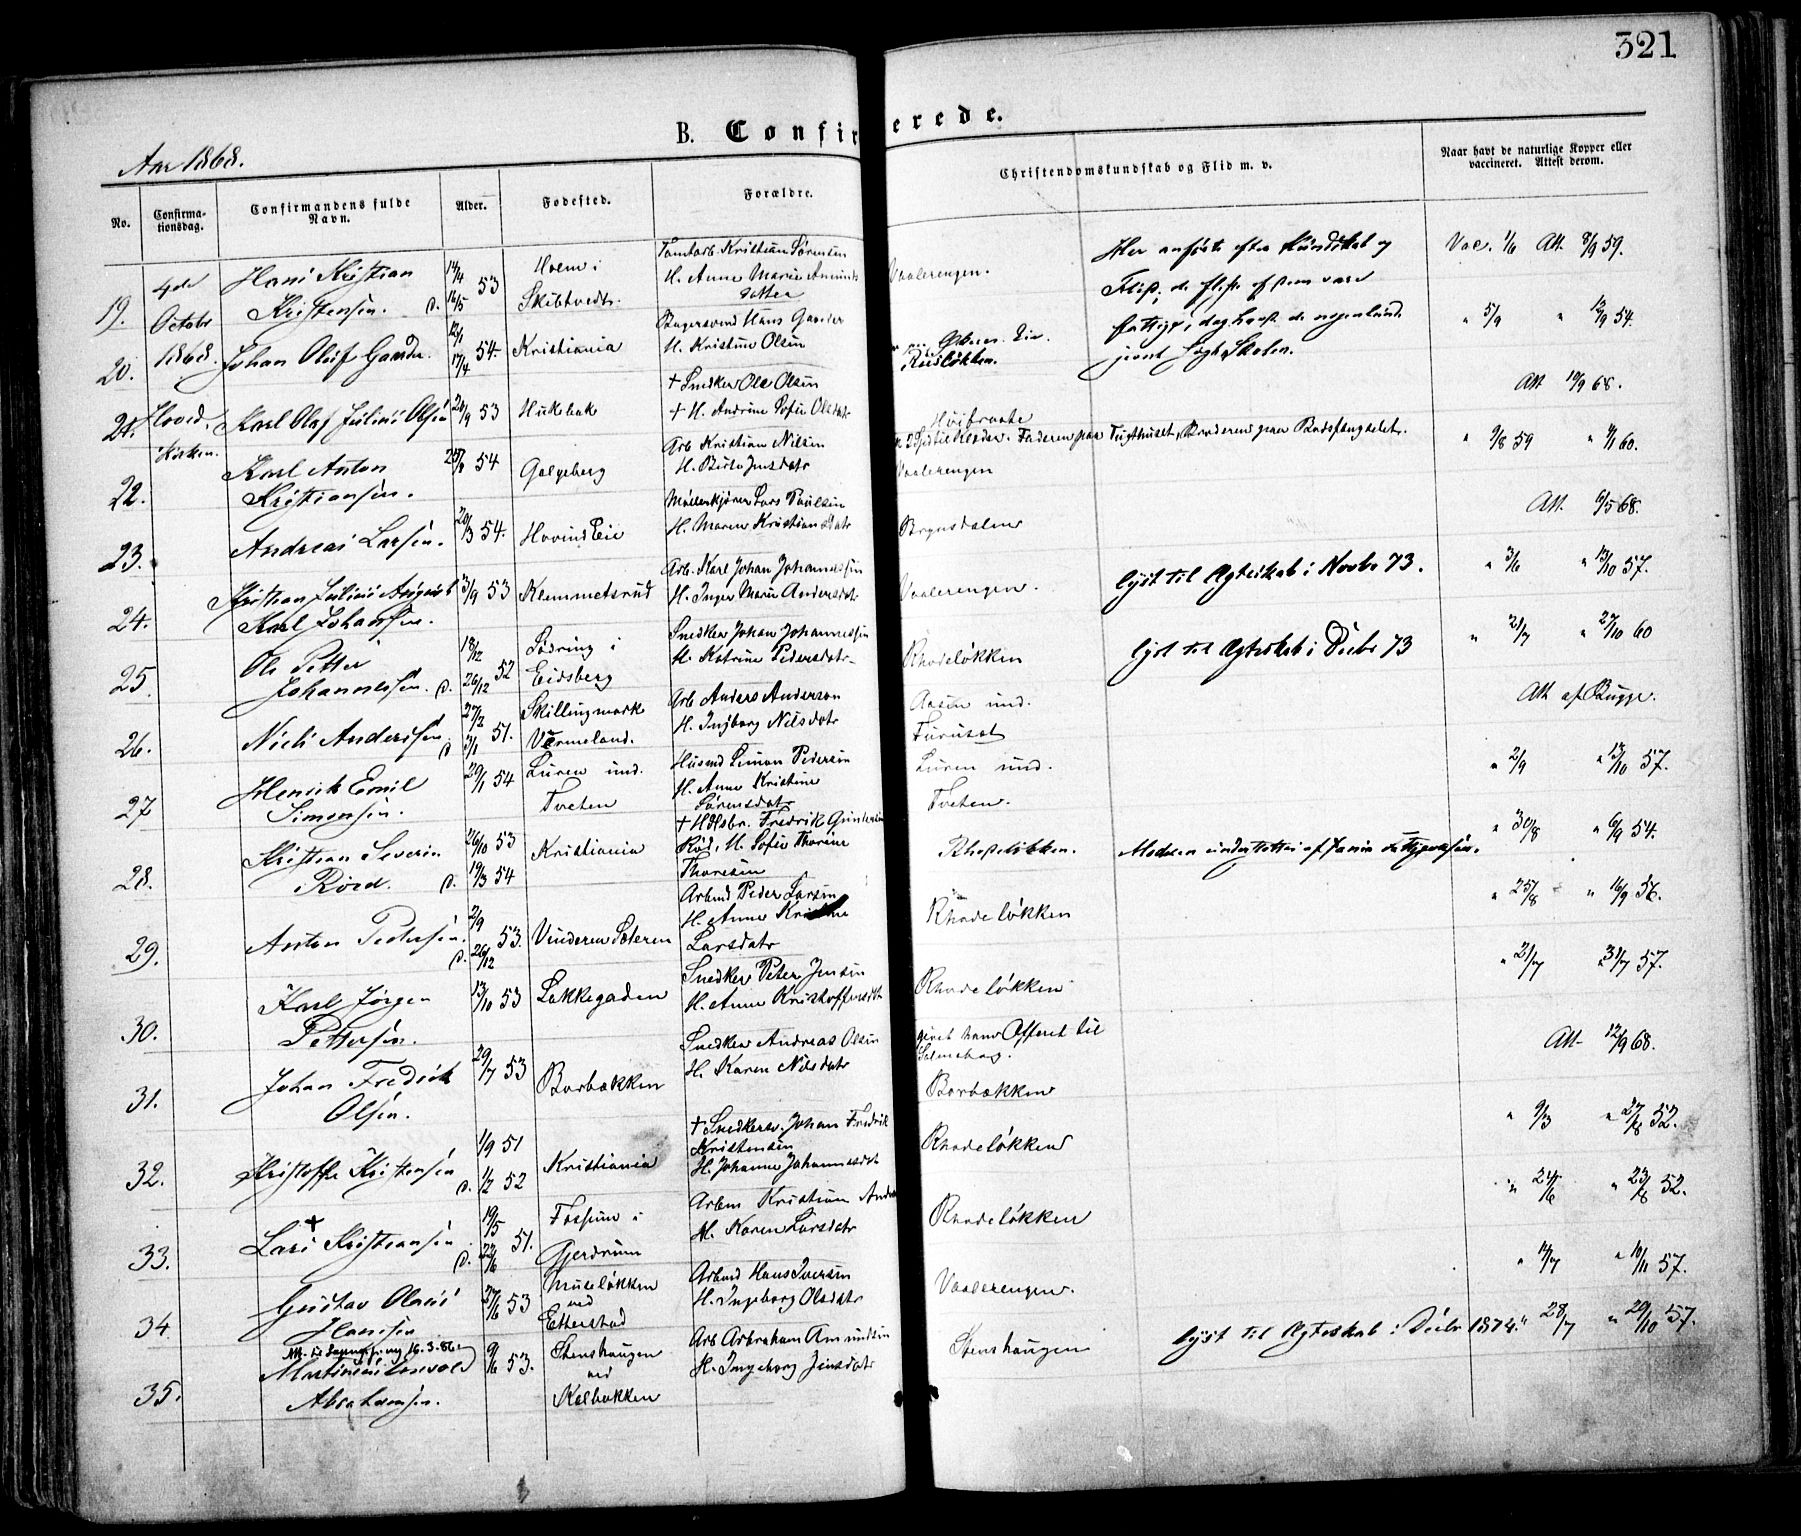 321
B. Confir erede.
Aar 1868.
No.
Confirma-
tionsdag.
Confirmandens fulde
Navn.
Alder.
Fødested.
Forældre.
Christendomskundskab og Flid m. v.
Naar havt de naturlige Kopper eller
vaccineret. Attest derom.
19. 4de October 1868. Hoved Kirken.
Hans Kristian
Kristensen. d. 53
Holm i
Skibtvedt.
Tomtarb. Kristian Sørensen
H. Anne Marie Amunds
datter
Vaalerengen.
Her anføres efter Kundskab og
Flid; de fleste af dem vare
fattige, dog havde de nogenlunde
Vac. 1/6 Att. 8/9 59.
20. Johan Oluf Gander. 17/4 54. Kristiania
Bagersvend Hans Gander
H. Kristine Olsen
Rodeløkken.
jevnt søgt Skolen.
" 5/9 " 12/9 54.
21. Karl Olaf Julius Olsen 53 Hukebak
+ Snedker Ole Olsen
+ H. Andrine Sofie Olsdatr
Høibraate
Faderen paa Tugthuset, Broderen paa Bodsfængselet.
Att 10/9 68.
22. Karl Anton
Kristiansen. 54 Galgeberg
Arb. Kristian Nilsen
H. Berte Jensdatr
Vaalerengen
" 9/8 59 " 9/1 60.
23. Andreas Larsen. 20/3 54. Hovind Eie
Møllerkjører Lars Paulsen
H. Maren Kristiansdatr
Brynsdalen
Att. 6/5 68.
24. Kristian Julius August
Karl Johansen. 3/9 53 Klemmetsrud
Arb. Karl Johan Johannessen
H. Inger Marie Andersdatr
Vaalerengen.
lyst til Ægteskab i Novbr 73.
" 3/6 " 13/10 57.
25. Ole Petter
Johannessen. d. 18/12 26/12 52
Lødring i
Eidsberg
Snedker Johan Johannessen
H. Katrine Pedersdatr
Rhodeløkken
lyst til Ægteskab i Decbr 73
" 21/7 " 27/10 60
26. Niels Andersen d. 27/2 3/1 51.
Skillingmark
Vermeland.
Arb Anders Anderson
H. Ingborg Nilsdatr
Aasen und.
Furuset
Att af Bugge.
27 Henrik Emil
Simonsen. 29/1 54
Luren und.
Tveten
Husmd Simon Pedersen
H. Anne Kristine
Sørensdatr
Luren und.
Tveten.
" 2/9 " 13/10 57.
28. Kristian Severin
Rörd. d. 26/10 53 19/3 54 Kristiania
+ Hdlsbr. Fredrik Gundersen
Röd, H. Sofie Thorine
Thoresen
Rhodeløkken.
" 30/8 " 6/9 54.
29. Anton Pedersen. d. 2/9 26/12 53. Vinderen Sæteren
Arbmd Peder Larsen
H. Anne Kristine
Larsdatr
Rhodeløkken
" 25/8 " 16/9 56.
30. Karl Jørgen
Pettersen. 13/10 53 Lakkegaden
Snedker Peter Jensen
H. Anne Kristoffersdatr
Rhodeløkken
" 21/7 " 31/7 57.
31. Johan Fredrik
Olsen. 29/7 53 Borbakken
Snedker Andreas Olsen
H. Karen Nilsdatr
givet ham Offeret til
Salmebog.
Borbakken
Att 12/9 68.
32. Kristoffer Kristensen d. 1/9 51 1/2 52 Kristiania
+ Snedkersv. Johan Fredrik
Kristensen
H. Johanne Johannesdat
Rhodeløkken
" 9/3 " 27/8 52.
33. Lars Kristiansen d. 19/5 22/6 51.
Fossum i
Gjerdrum
Arbm Kristian Andr
H. Karen Larsdatr
Rhodeløkken
" 24/6 " 23/8 52.
34 Gustav Olaus
Hansen 27/6 53
Museløkken
ved
Etterstad
Arbmd Hans Iversen
H. Ingeborg Olsdatr
Vaalerengen.
" 17/7 " 10/11 57.
35. 16-3-86
Martinius
Abrahamsen. 9/6 53.
Stenshaugen
ved
Kalbakken
Arb Arbraham Amundsen
H. Ingeborg Jensdatr
Stenshaugen
lyst til Ægteskab i Decbr 1874. " 28/7 " 29/10 57.